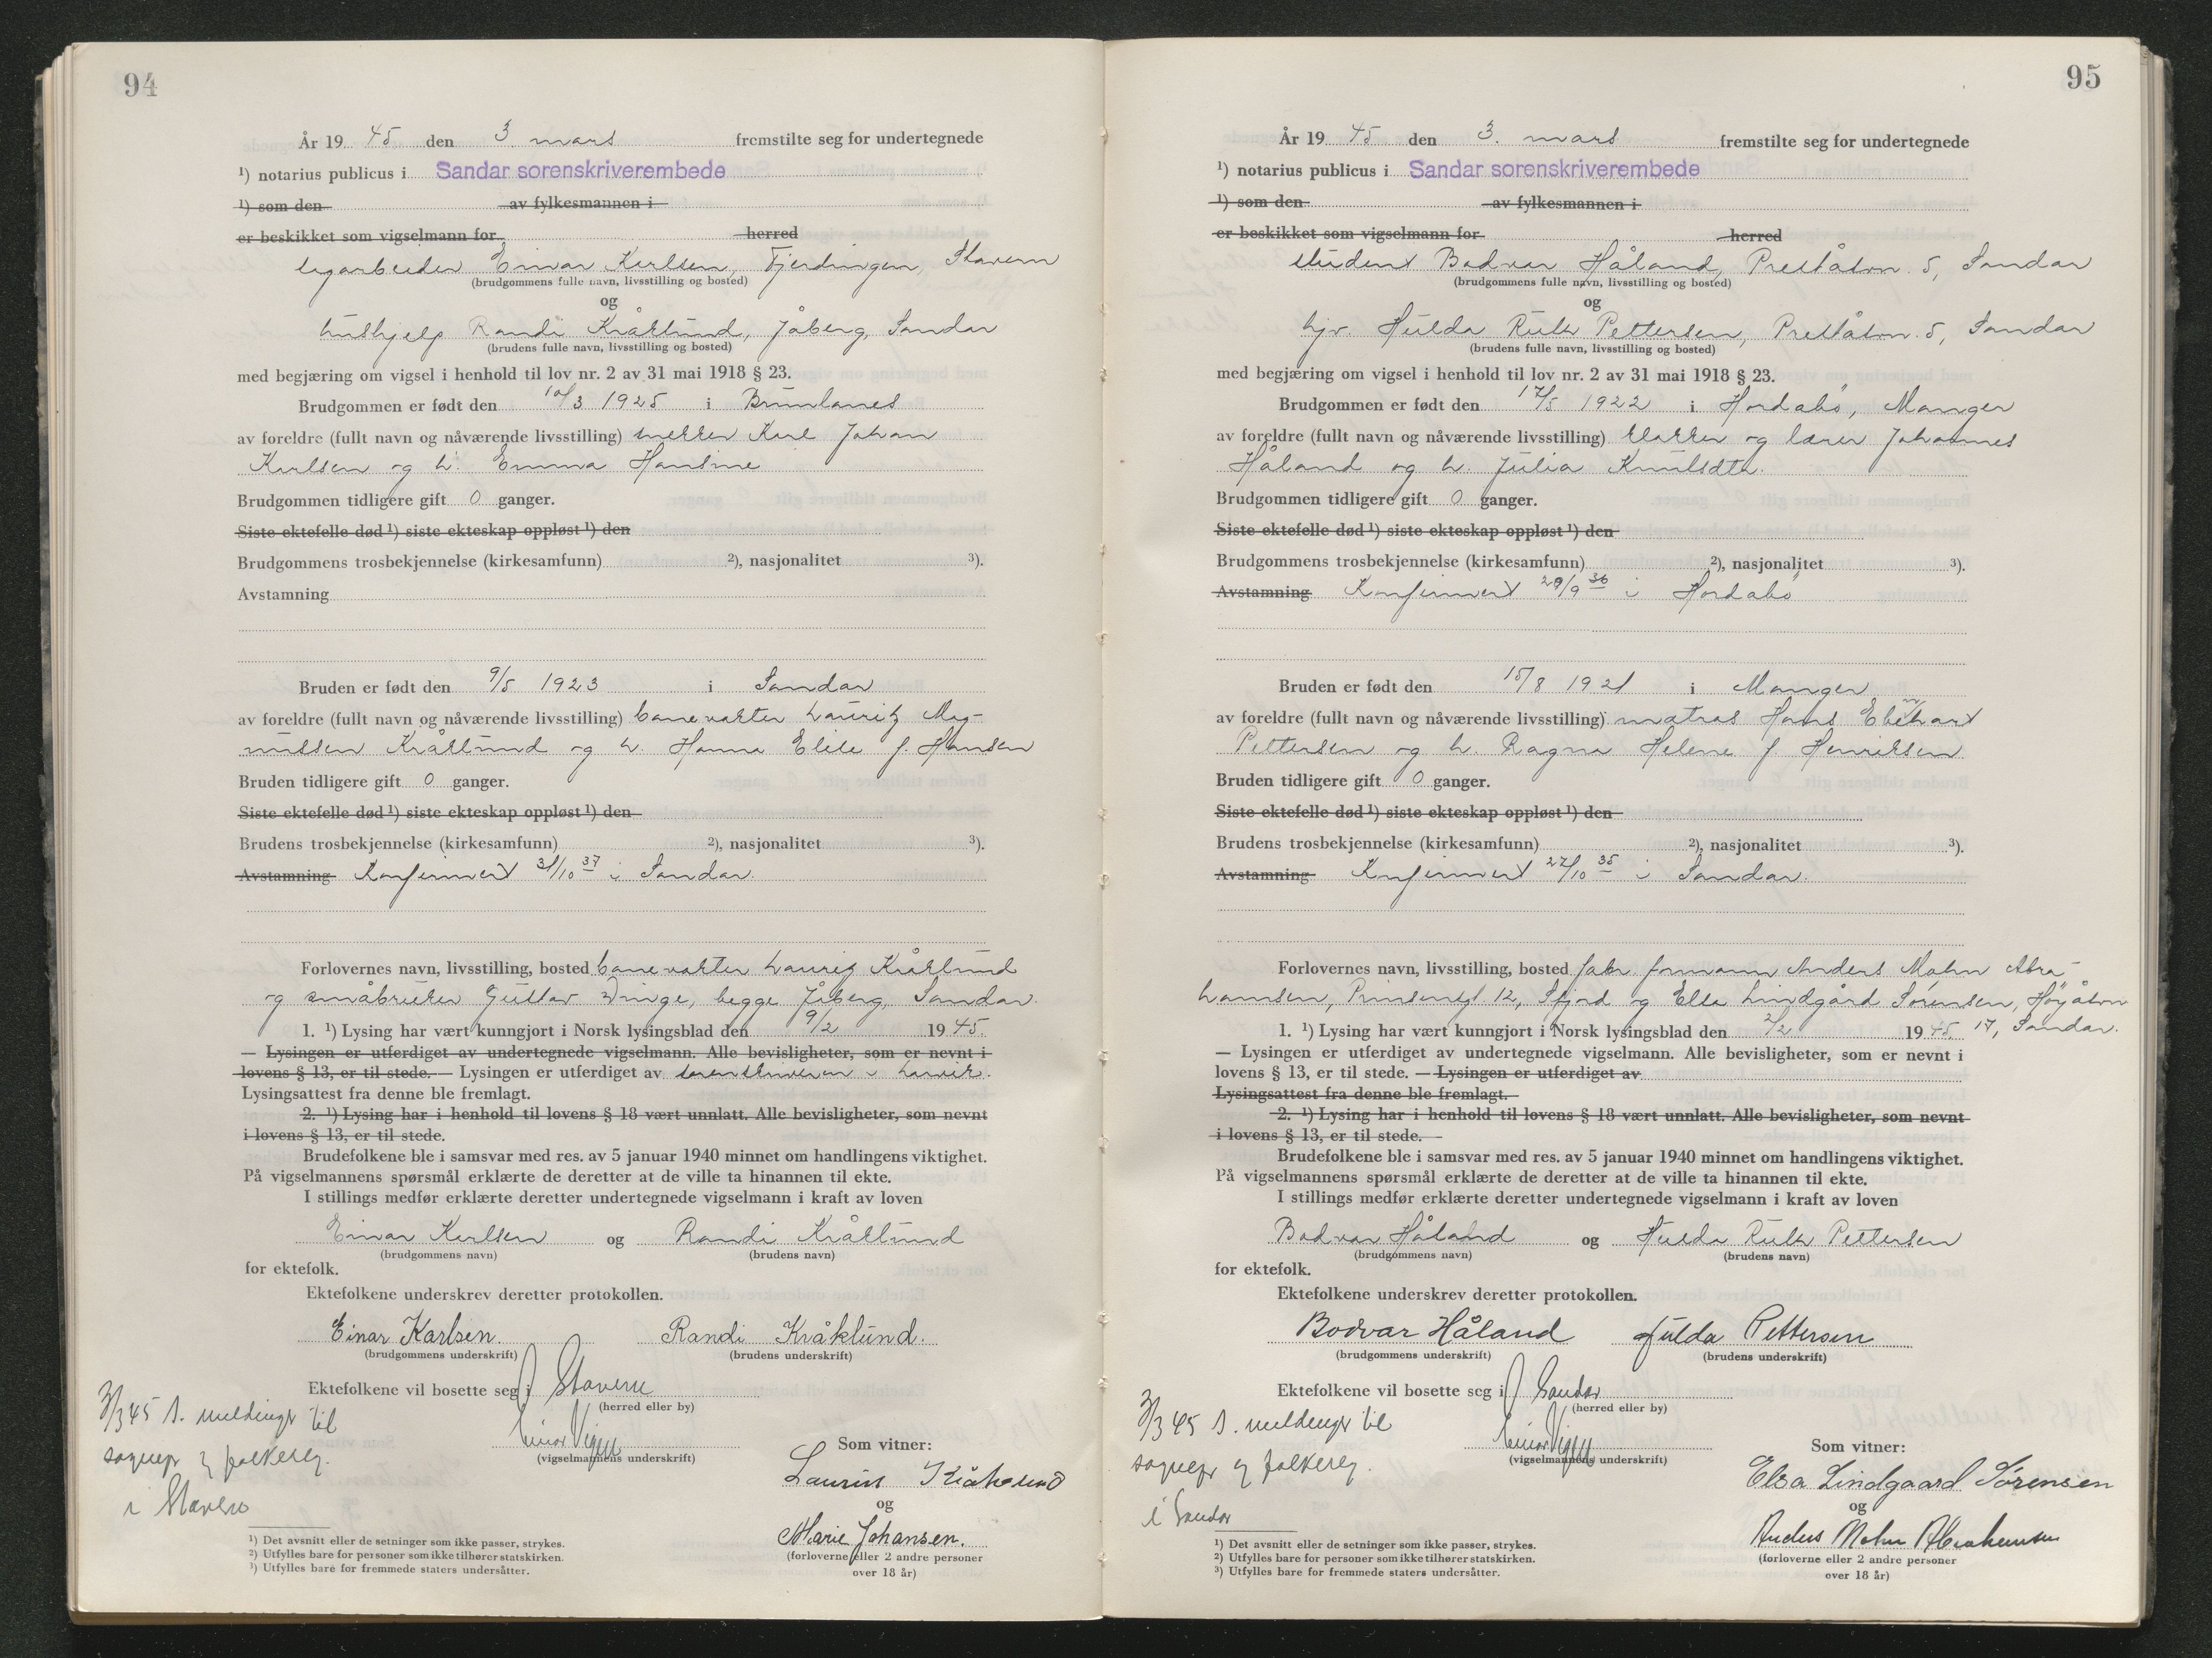 94
År 19 45 den 3. mars fremstilte seg for undertegnede
¹) notarius publicus i Sandar sorenskriverembede
¹) som den av fylkesmannen i
er beskikket som vigselmann for herred
Einar Karlsen, Fjerdingen, Stavern
(brudgommens fulle navn, livsstilling og bosted)
og
hushjelp Randi Kråklund, Jåberg, Sandar
(brudens fulle navn, livsstilling og bosted)
med begjæring om vigsel i henhold til lov nr. 2 av 31 mai 1918 § 23.
Brudgommen er født den 10/3 1925 i Brunlanes
av foreldre (fullt navn og nåværende livsstilling) snekker Karl Johan
Karlsen og h. Emma Hansine
Brudgommen tidligere gift 0 ganger.
Siste ektefelle død ¹) siste ekteskap oppløst ¹) den
Brudgommens trosbekjennelse (kirkesamfunn) ²), nasjonalitet ³).
Avstamning
Bruden er født den 9/5 1923 i Sandar
av foreldre (fullt navn og nåværende livsstilling) banevakter Lauritz Mag-
nussen Kråklund og h. Hanna Elise f. Hansen
Bruden tidligere gift 0 ganger.
Siste ektefelle død ¹) siste ekteskap oppløst ¹) den
Brudens trosbekjennelse (kirkesamfunn) ²), nasjonalitet ³).
Avstamning Konfirmert 31/10 37 i Sandar
Forlovernes navn, livsstilling, bosted banevakter Lauritz Kråklund
og småbruker Gustav Dinge, begge Jåberg, Sandar.
1. ¹) Lysing har vært kunngjort i Norsk lysingsblad den 9/2 19 45.
— Lysingen er utferdiget av undertegnede vigselmann. Alle bevisligheter, som er nevnt i
lovens § 13, er til stede. — Lysingen er utferdiget av sorenskriveren i Larvik.
Lysingsattest fra denne ble fremlagt.
2. ¹) Lysing har i henhold til lovens § 18 vært unnlatt. Alle bevisligheter, som nevnt
i lovens § 13, er til stede.
Brudefolkene ble i samsvar med res. av 5 januar 1940 minnet om handlingens viktighet.
På vigselmannens spørsmål erklærte de deretter at de ville ta hinannen til ekte.
I stillings medfør erklærte deretter undertegnede vigselmann i kraft av loven
Einar Karlsen og Randi Kråklund
(brudgommens navn) (brudens navn)
for ektefolk.
Ektefolkene underskrev deretter protokollen.
Einar Karlsen. Randi Kråklund.
(brudgommens underskrift) (brudens underskrift)
Ektefolkene vil bosette seg i Stavern
(herred eller by)
3/3 45 s. meldinger til
sognepr og folkereg.
i Stavern
Einar Vigen
(vigselmannens underskrift)
Som vitner:
Lauritz Kråklund
og
Marie Johansen.
(forloverne eller 2 andre personer
over 18 år)
¹) Det avsnitt eller de setninger som ikke passer, strykes.
²) Utfylles bare for personer som ikke tilhører statskirken.
³) Utfylles bare for fremmede staters undersåtter.
95
År 19 45 den 3. mars fremstilte seg for undertegnede
¹) notarius publicus i Sandar sorenskriverembede
¹) som den av fylkesmannen i
er beskikket som vigselmann for herred
student Bodvar Håland, Preståsvn. 5, Sandar
(brudgommens fulle navn, livsstilling og bosted)
og
hjv. Hulda Ruth Pettersen, Preståsvn. 5, Sandar
(brudens fulle navn, livsstilling og bosted)
med begjæring om vigsel i henhold til lov nr. 2 av 31 mai 1918 § 23.
Brudgommen er født den 17/5 1922 i Hordabø, Manger
av foreldre (fullt navn og nåværende livsstilling) klokker og lærer Johannes
Håland og h. Julia Knutsdtr.
Brudgommen tidligere gift 0 ganger.
Siste ektefelle død ¹) siste ekteskap oppløst ¹) den
Brudgommens trosbekjennelse (kirkesamfunn) ²), nasjonalitet ³).
Avstamning Konfirmert 29/9 36 i Hordabø
Bruden er født den 15/8 1921 i Manger
av foreldre (fullt navn og nåværende livsstilling) matros Hans Ebehart
Pettersen og h. Ragna Helene f. Henriksen
Bruden tidligere gift 0 ganger.
Siste ektefelle død ¹) siste ekteskap oppløst ¹) den
Brudens trosbekjennelse (kirkesamfunn) ²), nasjonalitet ³).
Avstamning Konfirmert 27/10 35 i Sandar.
Forlovernes navn, livsstilling, bosted fabr. formann Anders Mohn Abra-
hamsen, Prinsensgt 12, Sfjord og Elsa Lindgård Sørensen, Høyåsvn
1. ¹) Lysing har vært kunngjort i Norsk lysingsblad den 2/2 19 45. 17, Sandar.
— Lysingen er utferdiget av undertegnede vigselmann. Alle bevisligheter, som er nevnt i
lovens § 13, er til stede. — Lysingen er utferdiget av
Lysingsattest fra denne ble fremlagt.
2. ¹) Lysing har i henhold til lovens § 18 vært unnlatt. Alle bevisligheter, som nevnt
i lovens § 13, er til stede.
Brudefolkene ble i samsvar med res. av 5 januar 1940 minnet om handlingens viktighet.
På vigselmannens spørsmål erklærte de deretter at de ville ta hinannen til ekte.
I stillings medfør erklærte deretter undertegnede vigselmann i kraft av loven
Bodvar Håland og Hulda Ruth Pettersen
(brudgommens navn) (brudens navn)
for ektefolk.
Ektefolkene underskrev deretter protokollen.
Bodvar Håland Hulda Pettersen
(brudgommens underskrift) (brudens underskrift)
Ektefolkene vil bosette seg i Sandar
(herred eller by)
3/3 45 s. meldinger til
sognepr og folkereg.
i Sandar
Einar Vigen
(vigselmannens underskrift)
Som vitner:
Elsa Lindgaard Sørensen
og
Anders Mohn Abrahamsen
(forloverne eller 2 andre personer
over 18 år)
¹) Det avsnitt eller de setninger som ikke passer, strykes.
²) Utfylles bare for personer som ikke tilhører statskirken.
³) Utfylles bare for fremmede staters undersåtter.